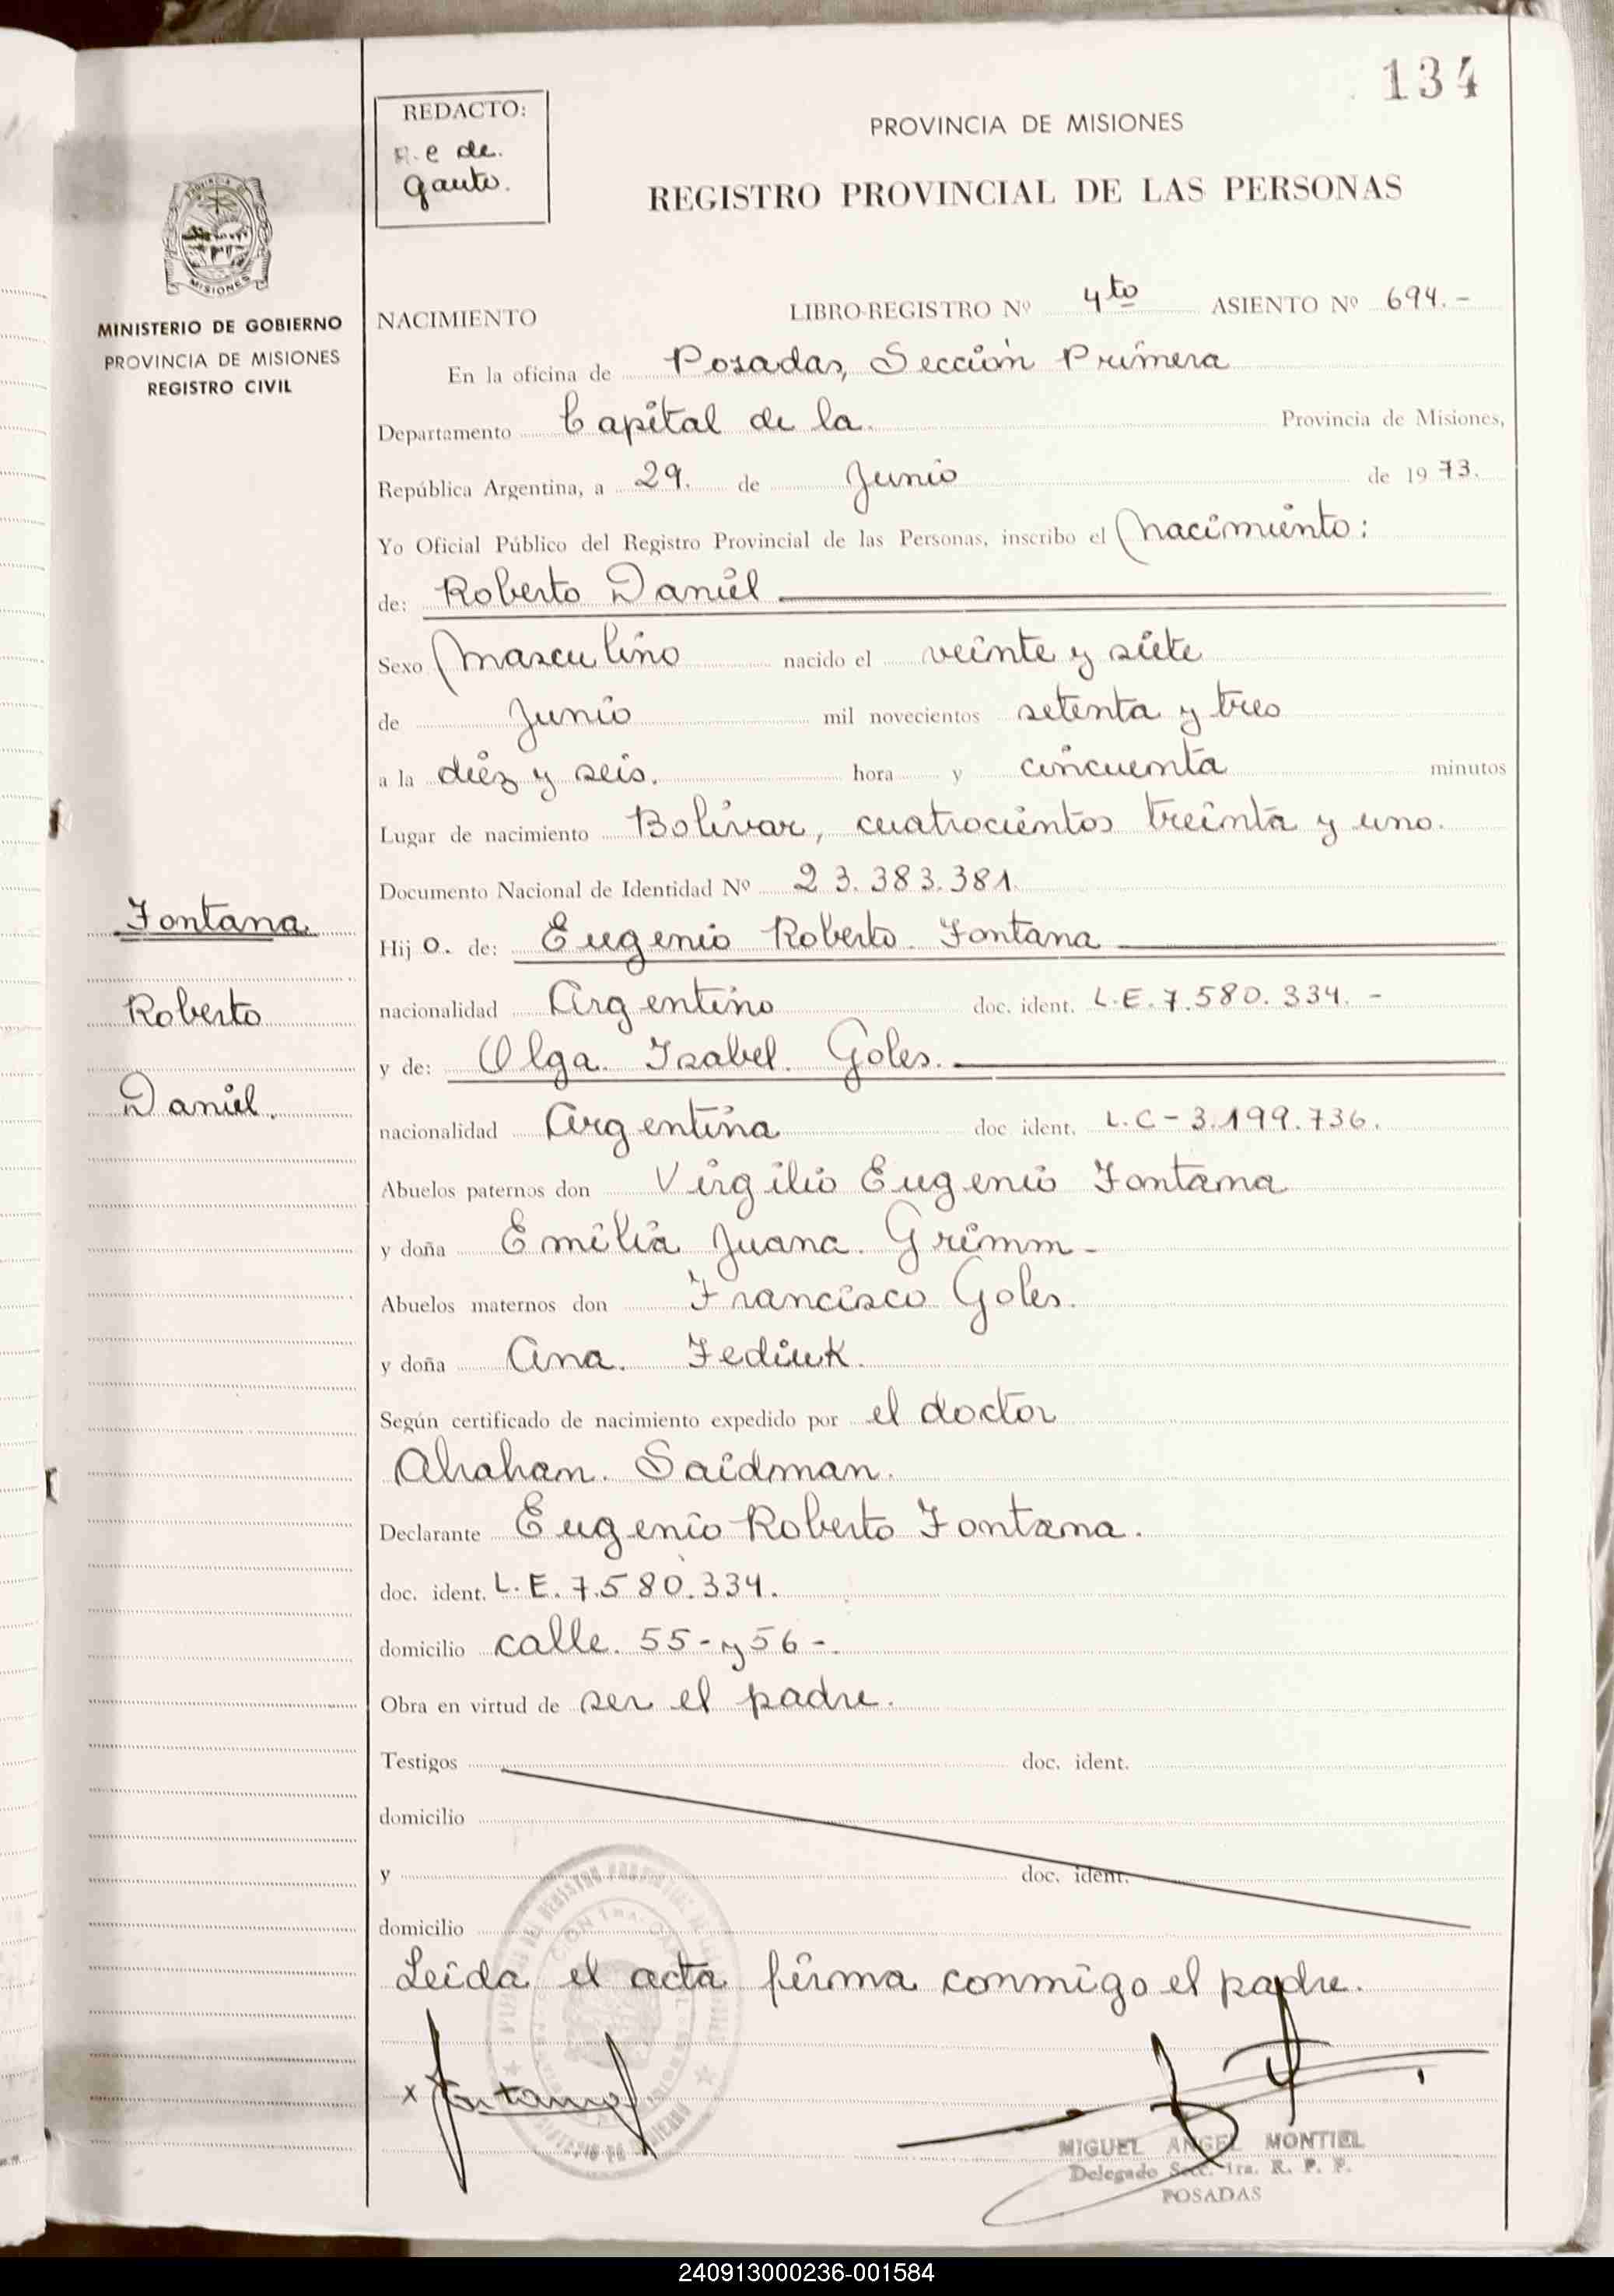 134
REDACTO:
e de.
gauto.
PROVINCIA DE MISIONES
REGISTRO PROVINCIAL DE LAS PERSONAS
MISIONES
MINISTERIO DE GOBIERNO
PROVINCIA DE MISIONES
REGISTRO CIVIL
NACIMIENTO LIBRO-REGISTRO Nº 4to ASIENTO Nº 694.-
En la oficina de Posadas, Sección Primera
Departamento Capital de la. Provincia de Misiones,
República Argentina, a 29. de Junio de 1973.
Yo Oficial Público del Registro Provincial de las Personas, inscribo el Nacimiento:
de: Roberto Daniel
Sexo Masculino nacido el veinte y siete
de Junio mil novecientos setenta y tres
a la diez y seis. hora y cincuenta minutos
Lugar de nacimiento Bolivar, cuatrocientos treinta y uno.
Documento Nacional de Identidad Nº 23.383.381.
Fontana.
Hijo. de: Eugenio Roberto Fontana
Roberto
nacionalidad Argentino doc. ident. L.E. 7.580.334.-
y de: Olga. Isabel. Goles.
Daniel.
nacionalidad Argentina doc ident. L.C-3.199.736.
Abuelos paternos don Virgilio Eugenio Fontana
y doña Emilia Juana. Grimm-
Abuelos maternos don Francisco Goles.
y doña Ana. Fediuk.
Según certificado de nacimiento expedido por el doctor
Abraham. Saidman.
Declarante Eugenio Roberto Fontana.
doc. ident. L.E. 7.580.334.
domicilio calle. 55-y 56-.
Obra en virtud de ser el padre.
Testigos doc. ident.
domicilio
y doc. ident.
domicilio
Leida el acta firma conmigo el padre.
x Fontana
MIGUEL ANGEL MONTIEL
Delegado Secc. 1ra. R. P. P.
POSADAS
240913000236-001584